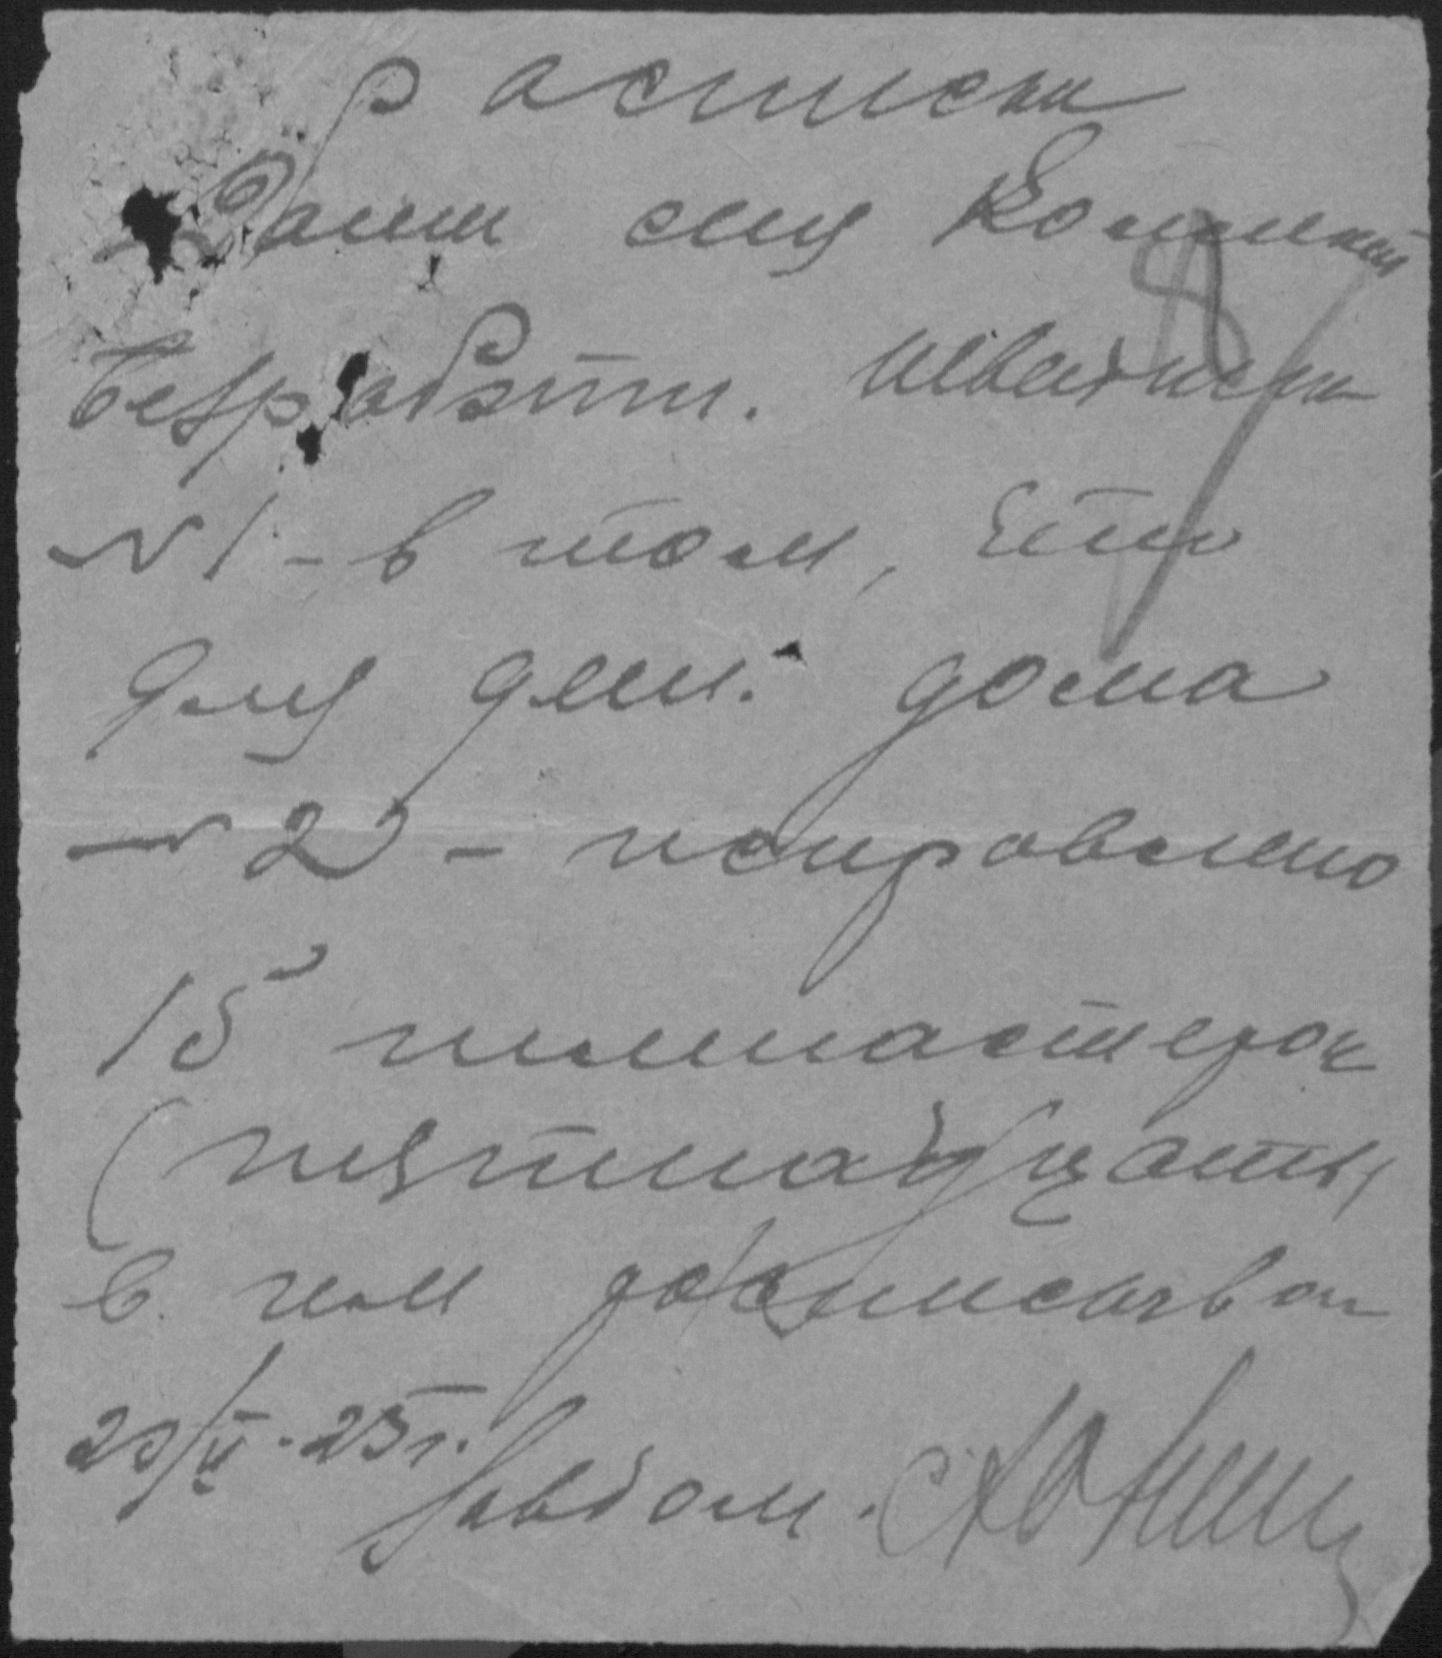 Расписка
Дана сия Комитет
безработн.
N 1 - в том, что
для дет. дома
N 2 - исправлено
15 гимнастерок
(пятнадцать
в чем расписываюсь
20/V. 25 г.
Завдом.